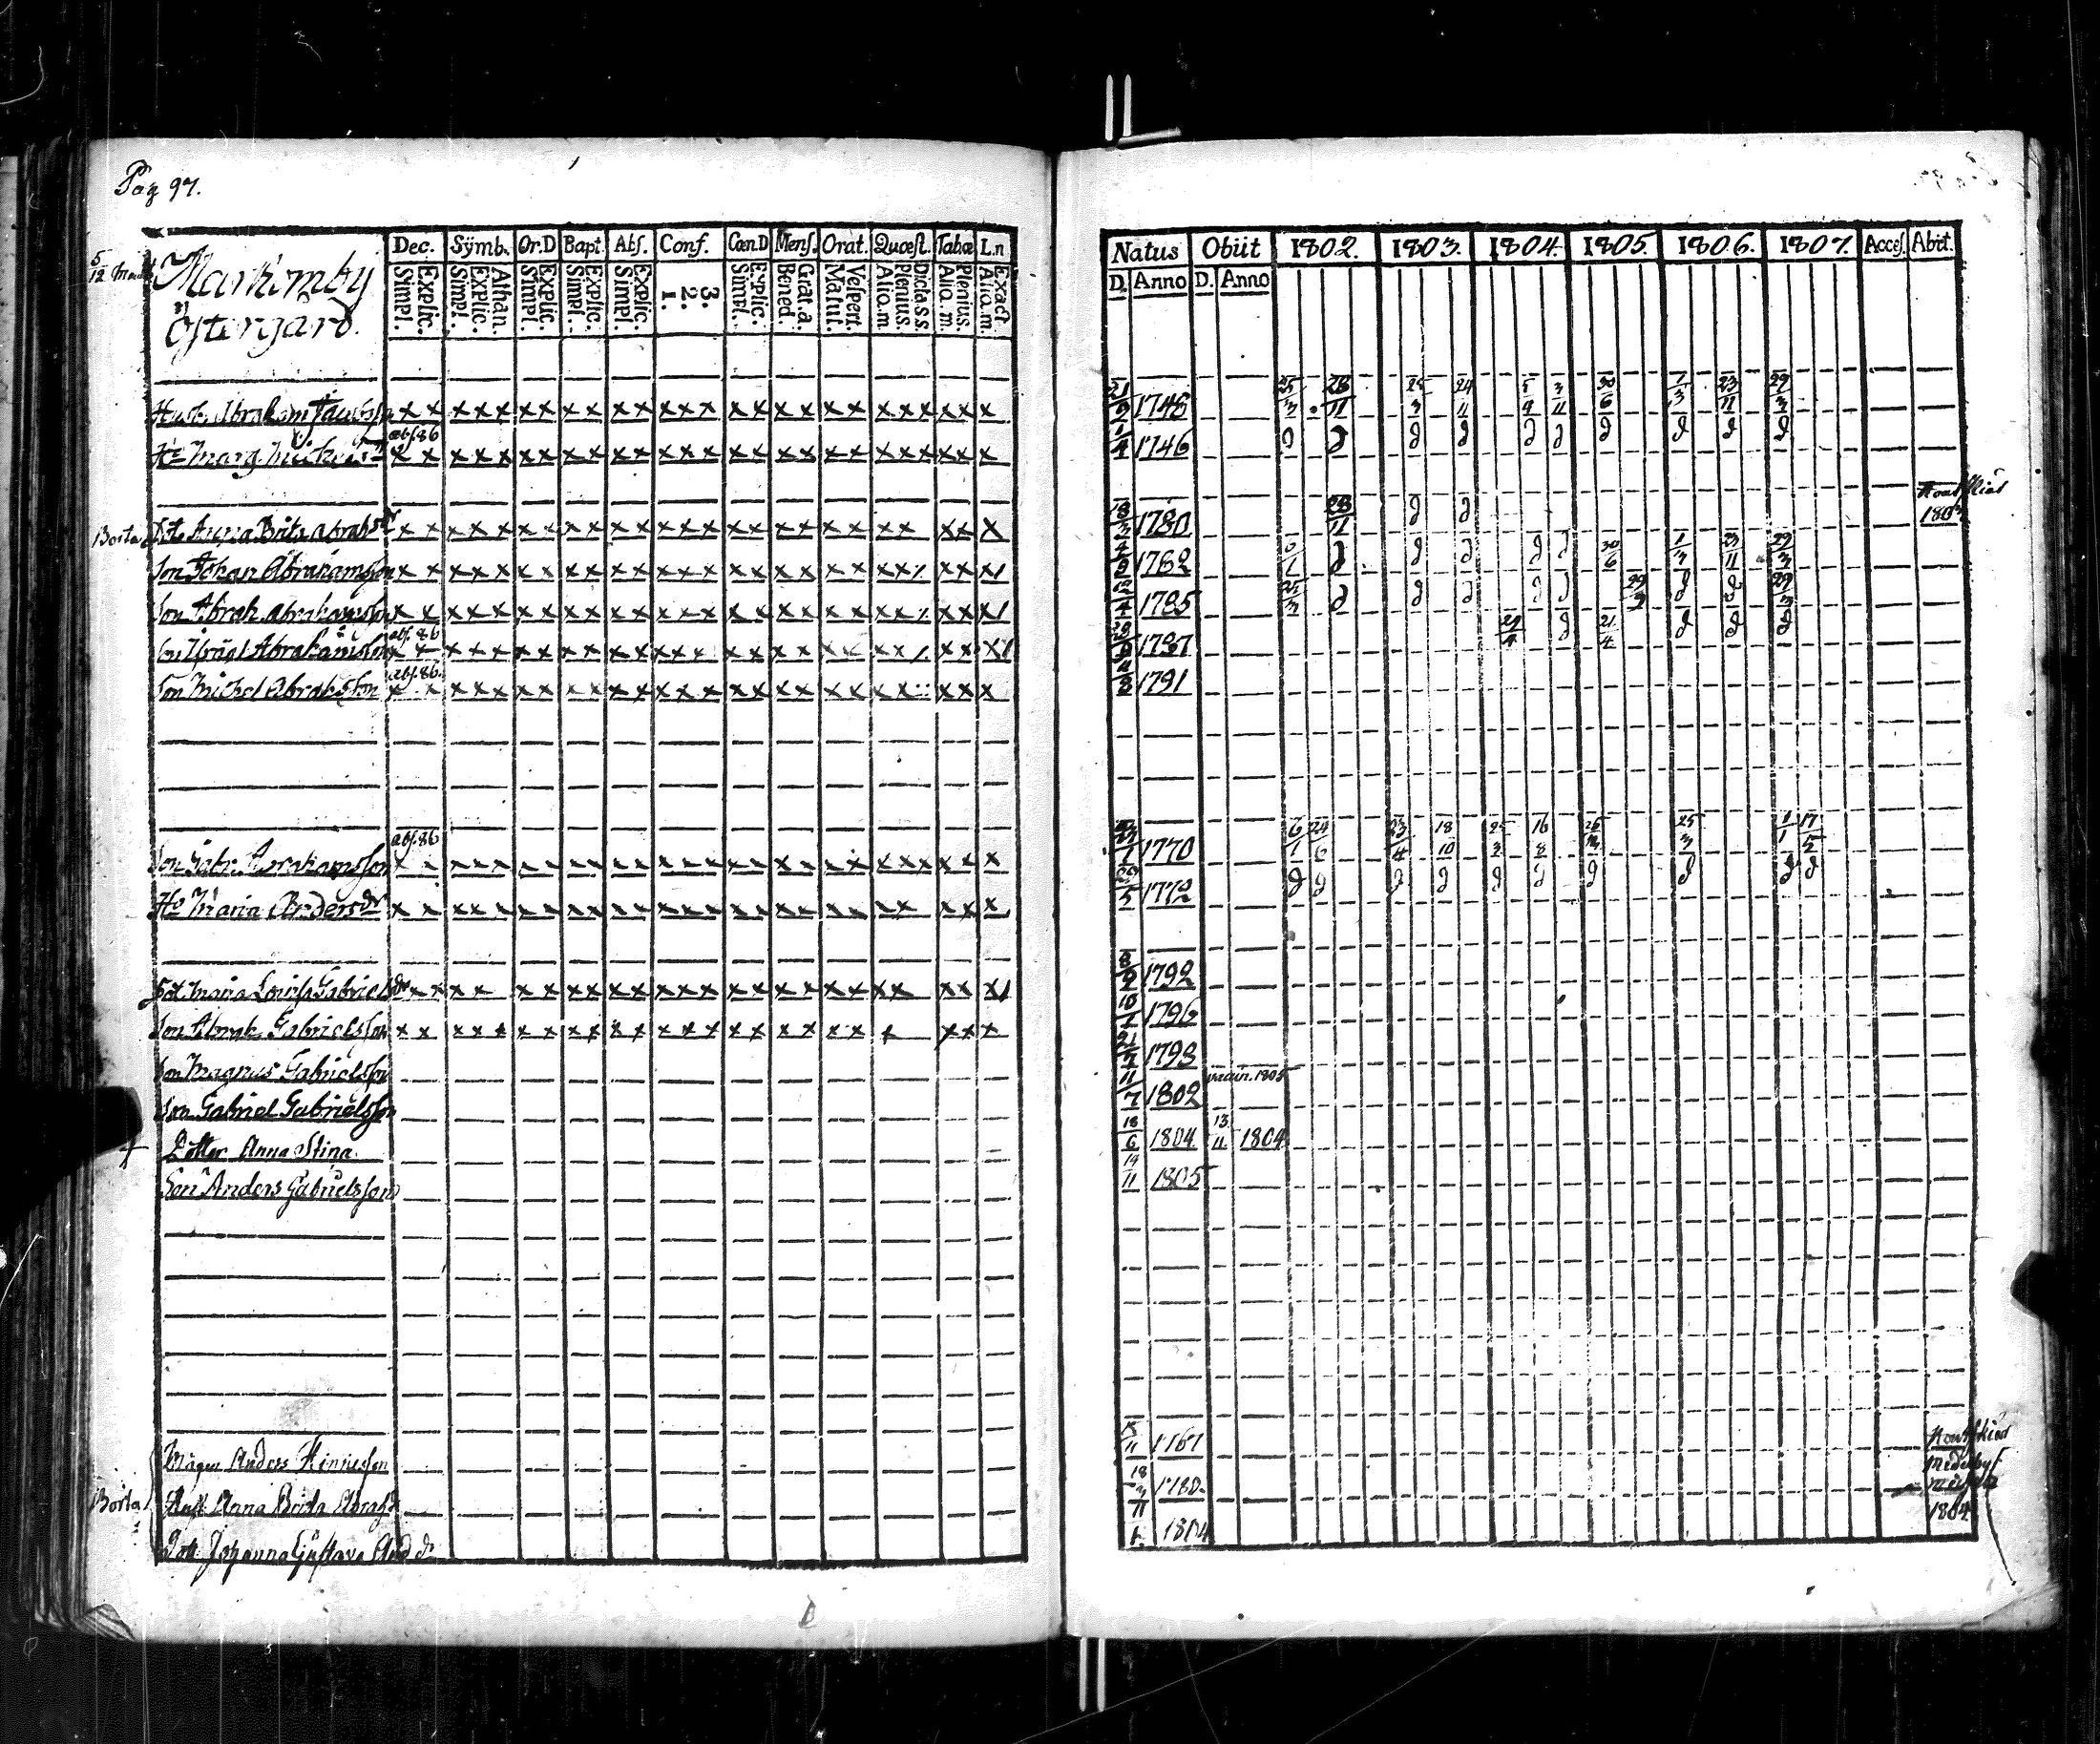 Pag 97.
5/12 Mantl
Markomby
Östergård.
Dec. Symb. Or.D Bapt. Abs. Conf. Cœn.D Mens. Orat. Quæst. Tabæ L.n
Explic. Simpl. Athan. Explic. Simpl. Explic. Simpl. Explic. Simpl. Explic. Simpl. 3. 2. 1. Explic. Simpl. Grat.a. Bened. Vespert. Matut. Dicta ss. Plenius. Aliq.m. Plenius. Aliq.m. Exact Aliq.m.
Husb. Abraham Jacobsson x x x x x x x x x x x x x x x x x x x x x x x x x x x
abs. 86
Hu Marg x x x x x x x x x x x x x x x x x x x x x x x x x x x
Borta Dot. Anna Brita Abrahsdr x x x x x x x x x x x x x x x x x x x x x x x x x x
Son Johan Abrahamsson x x x x x x x x x x x x x x x x x x x x x x x x x
Son Abrah. Abrahamsson x x x x x x x x x x x x x x x x x x x x x x x x x
abs. 86
Son Israel Abrahamsson x x x x x x x x x x x x x x x x x x x x x x x x x
abs. 86.
Son Michel Abrahsson x x x x x x x x x x x x x x x x x x x x x x x x x
abs. 86
Son Gabr. Abrahamsson x x x x x x x x x x x x x x x x x x x x x x x x x x x
Hu Maria Andersdr x x x x x x x x x x x x x x x x x x x x x x x x x
Dot. Maria Lovisa Gabrielsdr x x x x x x x x x x x x x x x x x x x x x x x x
Son Abrah. Gabrielsson x x x x x x x x x x x x x x x x x x x x x x x x
Son Magnus Gabrielsson
Son Gabriel Gabrielsson
Dotter Anna Stina
Son Anders Gabrielsson
Mågen Anders Hinricsson
Borta Hust. Anna Brita Abrahsd
Dott. Johanna Gustava And.dr
Natus Obiit 1802. 1803. 1804. 1805. 1806. 1807. Acces. Abiit.
D. Anno D. Anno
21/9 1748 25/3 28/11 25/3 24/11 5/4 3/11 30/6 1/3 23/11 29/3
1/4 1746 d d d d d d d d d d
18/3 1780 28/11 d d 180
1782 6/1 d d d d d 30/6 1/3 23/11 29/3
1785 25/3 d d d d d 29/9 d d 29/3
1787 29/4 d 21/4 d d d
1791
1770 6/1 24/6 23/4 18/10 25/3 16/8 25/3 1/1 17/5
1772 d d d d d d d d d d
8/9 1792
10/1 1796
21/7 1798
11/7 1802 1805
18/6 1804 13/11 1804
19/11 1805
5/11 1767
18/3 1780
11/1 1804 1804